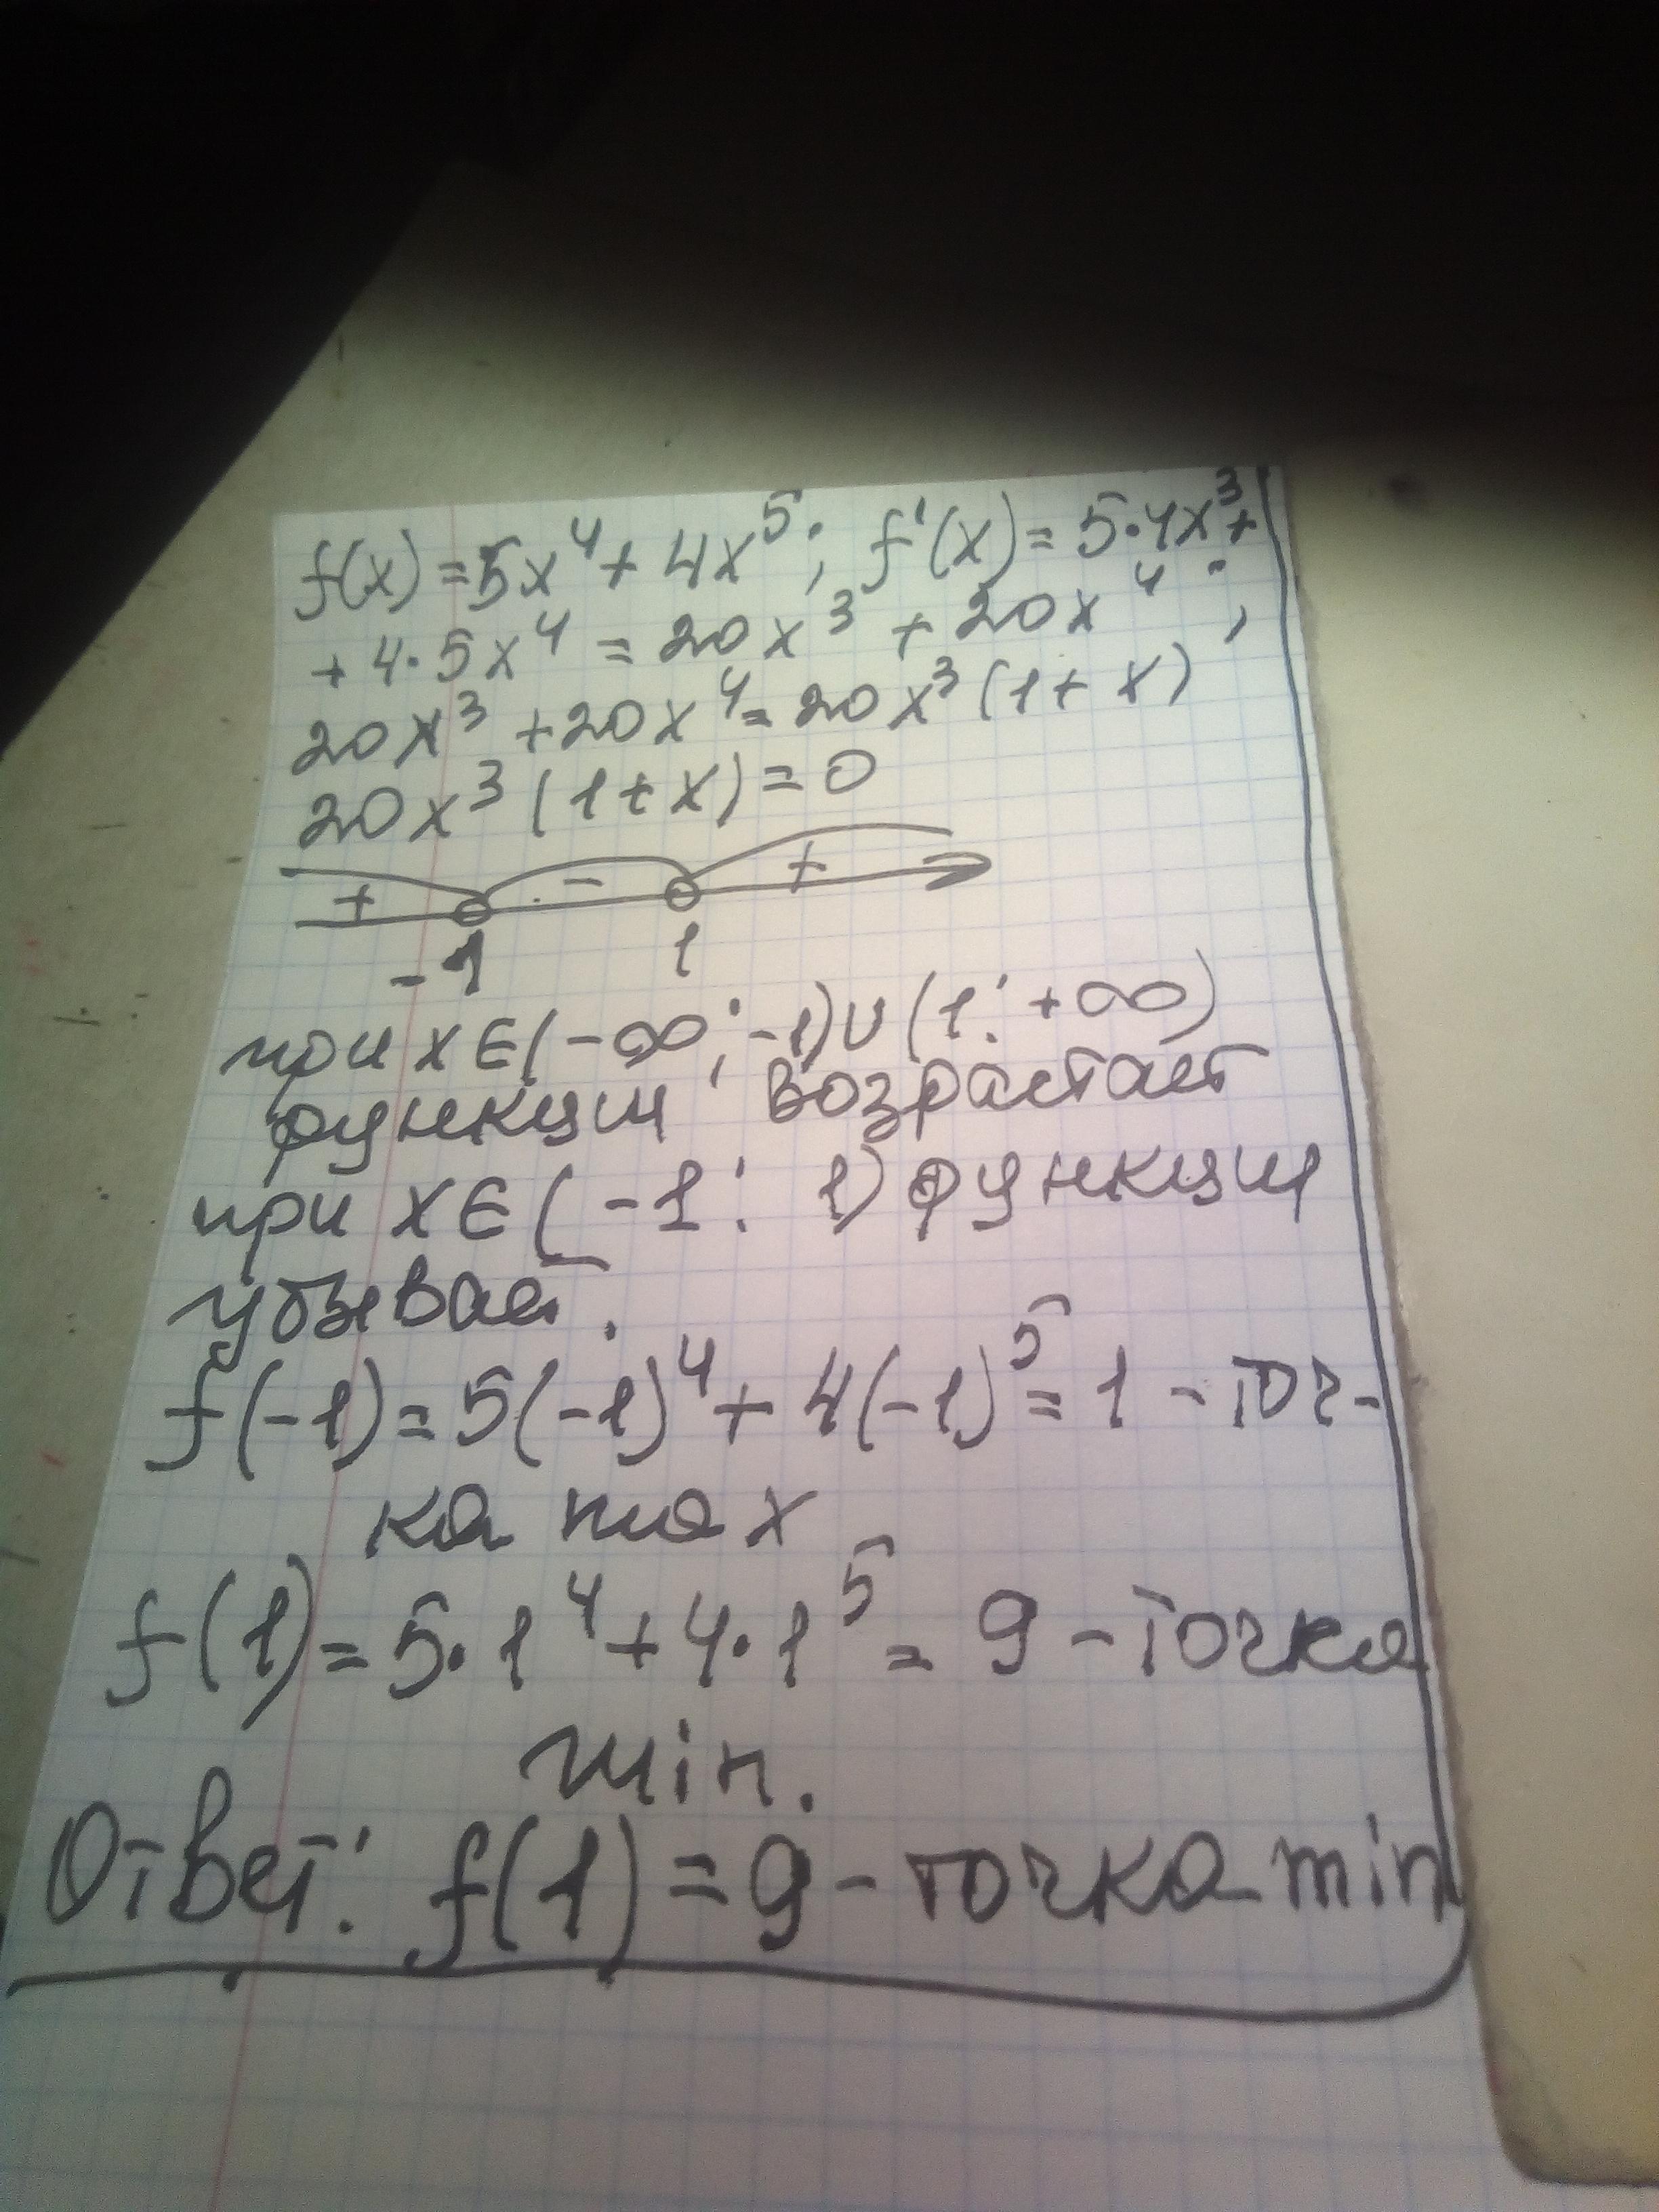 f(x) = 5x⁴ + 4x⁵; f'(x) = 5·4x³+
+ 4·5x⁴ = 20x³ + 20x⁴;
20x³ + 20x⁴ = 20x³(1 + x)
20x³(1 + x) = 0
+ - +
-1 1
при x∈(-∞; -1)∪(1; +∞)
функция возрастает
при x∈(-1; 1) функция
убывает.
f(-1) = 5(-1)⁴ + 4(-1)⁵ = 1 - точ-
ка max
f(1) = 5·1⁴ + 4·1⁵ = 9 - точка
min.
Ответ: f(1) = 9 - точка min